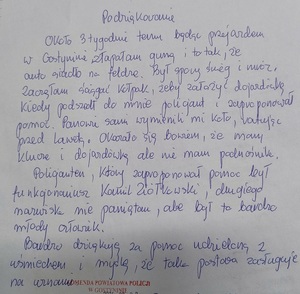 Podziękowanie
Około 3 tygodni temu będąc przejazdem
w Gostyninie złapałam gumę i to tak, że
auto siadło na feldze. Był spory śnieg i mróz.
Zaczęłam ściągać kołpak, żeby założyć dojazdówkę
kiedy podszedł do mnie policjant i zaproponował
pomoc. Panowie sami wymienili mi koło, ratując
przed lawetą. Okazało się bowiem, że mam
klucze i dojazdówkę ale nie mam podnośnika.
Policjantem, który zaproponował pomoc był
funkcjonariusz Kamil Ziółkowski, drugiego
nazwiska nie pamiętam, ale był to bardzo
młody człowiek.
Bardzo dziękuję za pomoc udzieloną z
uśmiechem i myślę, że taka postawa zasługuje
na uznanie
KOMENDA POWIATOWA POLICJI
W GOSTYNINIE